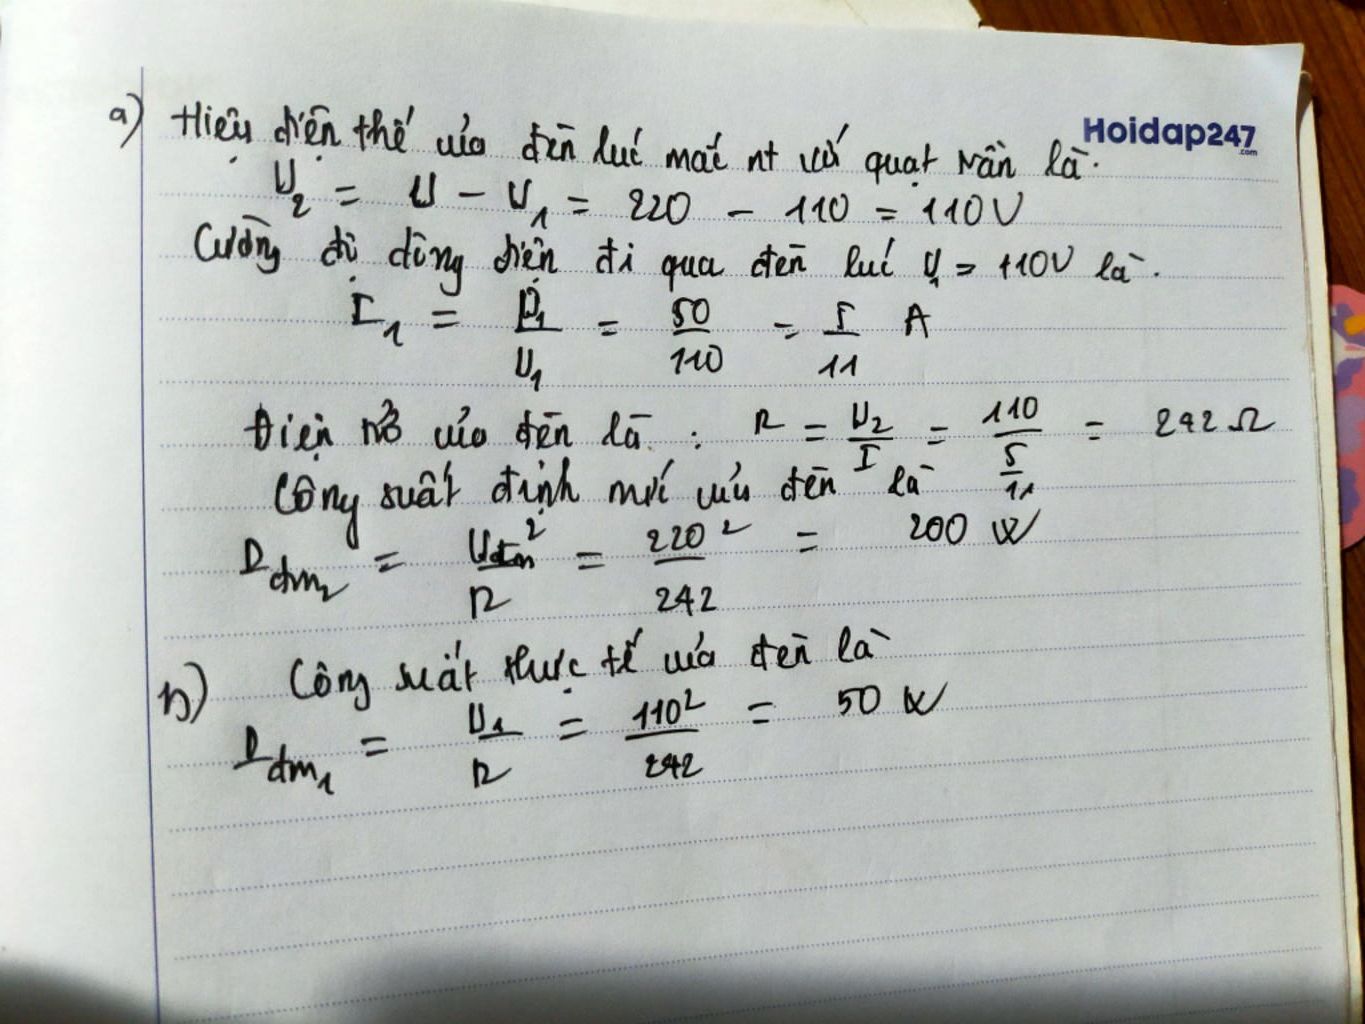 Hoidap247
.com
a) Hiệu điện thế của đèn lúc mắc nt với quạt trần là.
U₂ = U - U₁ = 220 - 110 = 110V
Cường độ dòng điện đi qua đèn lúc U₁ = 110V là.
I₁ = P₁/U₁ = 50/110 = 5/11 A
Điện trở của đèn là : R = U₂/I = 110/(5/11) = 242 Ω
Công suất định mức của đèn là
Pđm₂ = Uđm²/R = 220²/242 = 200 W
b) Công suất thực tế của đèn là
Pđm₁ = U₁/R = 110²/242 = 50 W